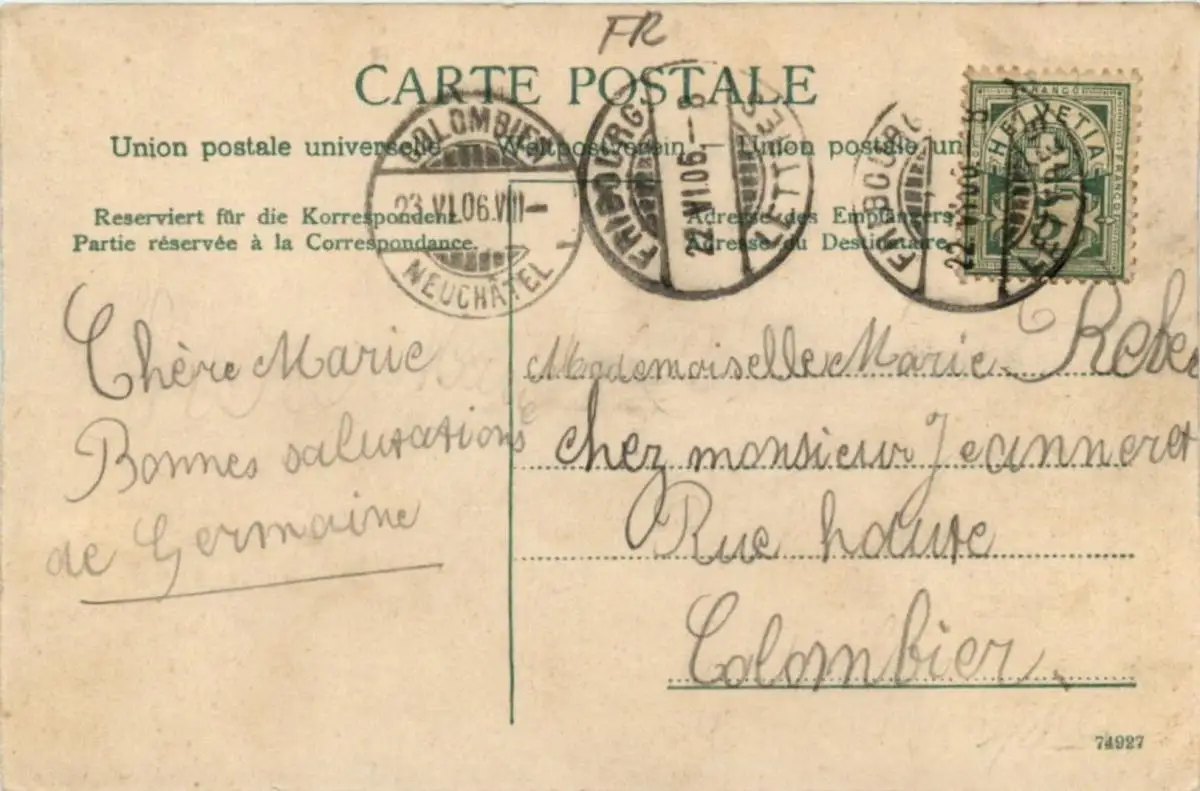 FR
CARTE POSTALE
Union postale universelle — Weltpostverein — Union postale un
Reserviert für die Korrespondenz.
Partie réservée à la Correspondance.
Adresse des Empfängers
Adresse du Destinataire
COLOMBIER
23.VI.06.VIII—
NEUCHÂTEL
FRIBOURG
22.VI.06.—8
LETTRES
FRIBOURG
22.VI.06.—8
LETTRES
FRANCO
HELVETIA
Chère Marie
Bonnes salutations
de Germaine
Mademoiselle Marie Rebe
chez monsieur Jeanneret
Rue haute
Colombier.
74927